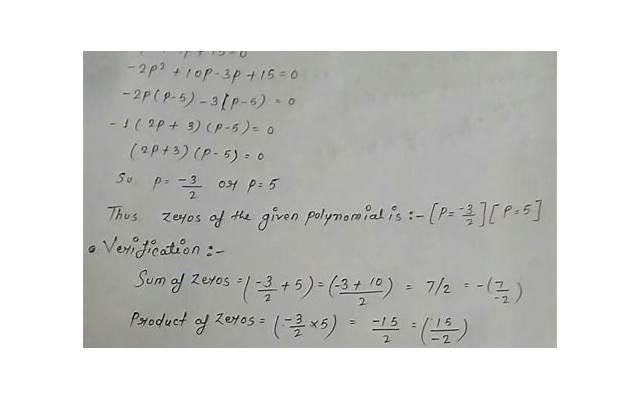 +15=0
-2p² + 10p-3p +15=0
-2p(p-5) -3(p-5) = 0
-1(2p+3)(p-5)=0
(2p+3)(p-5)=0
So p= -3/2 or p=5
Thus. zeros of the given polynomial is :- [p= -3/2] [p=5]
Verification :-
Sum of zeros = (-3/2 + 5) = (-3+10/2) = 7/2 = -(7/-2)
Product of zeros = (-3/2 ×5) = -15/2 = (15/-2)